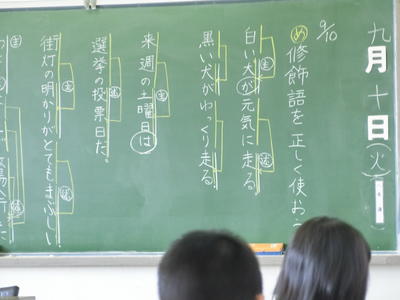 九月十日(火)
9/10
め 修飾語を正しく使おう
白い犬が元気に走る。
主
述
黒い犬がゆっくり走る。
来週の土曜日は
主
選挙の投票日だ。
述
街灯の明かりがとてもまぶしい。
主
述
主
述